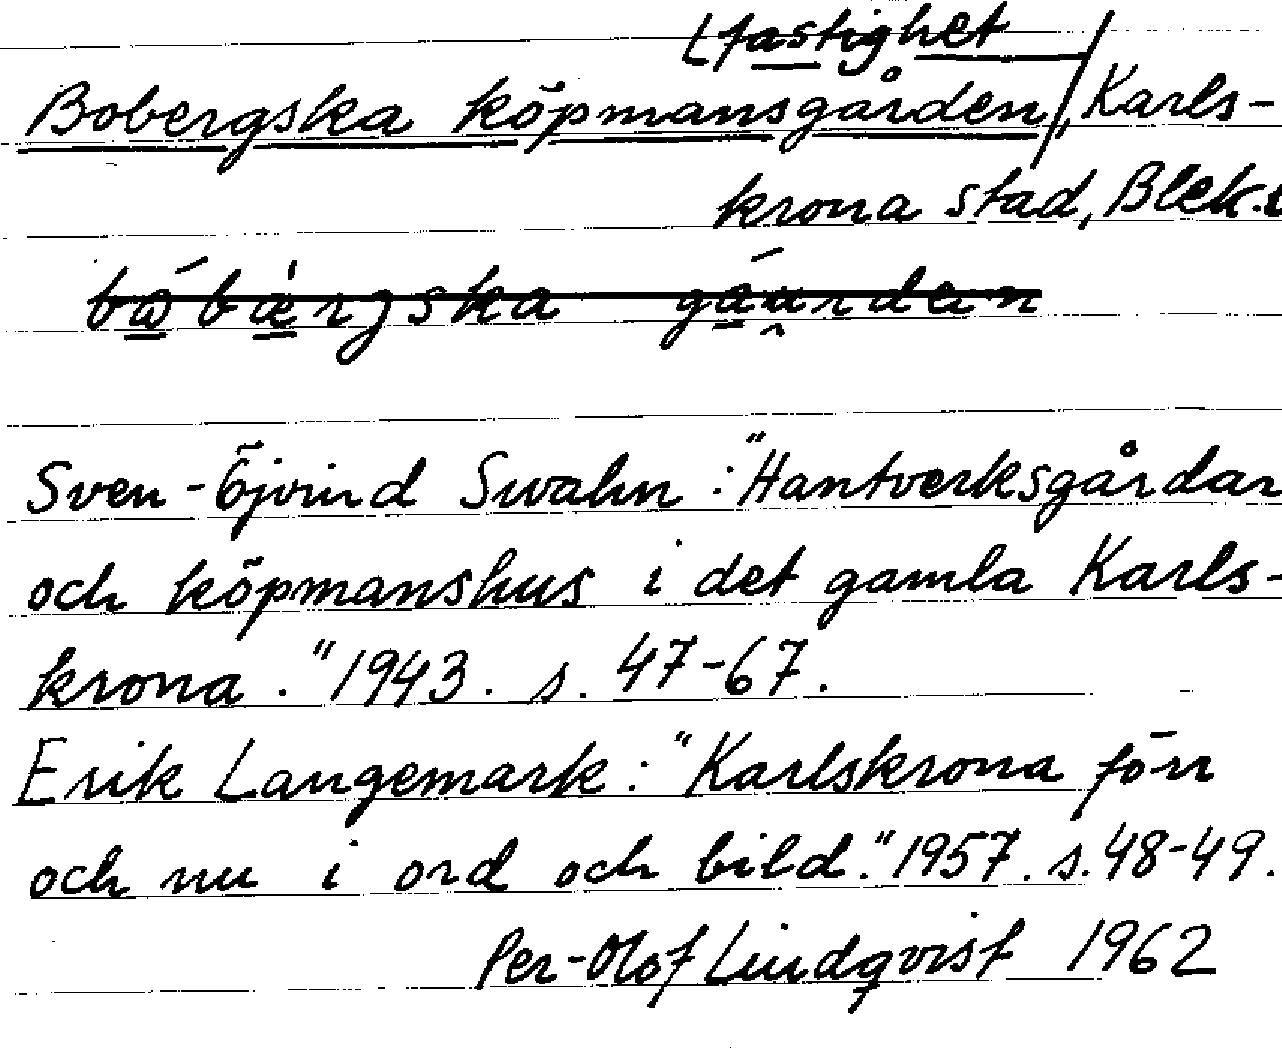 fastighet
Bobergska köpmansgården, Karls-
krona stad, Blek.
Sven-Öjvind Swahn: "Hantverksgårdar
och köpmanshus i det gamla Karls-
krona." 1943. s. 47-67.
Erik Langemark: "Karlskrona förr
och nu i ord och bild." 1957. s. 48-49.
Per-Olof Lindqvist 1962